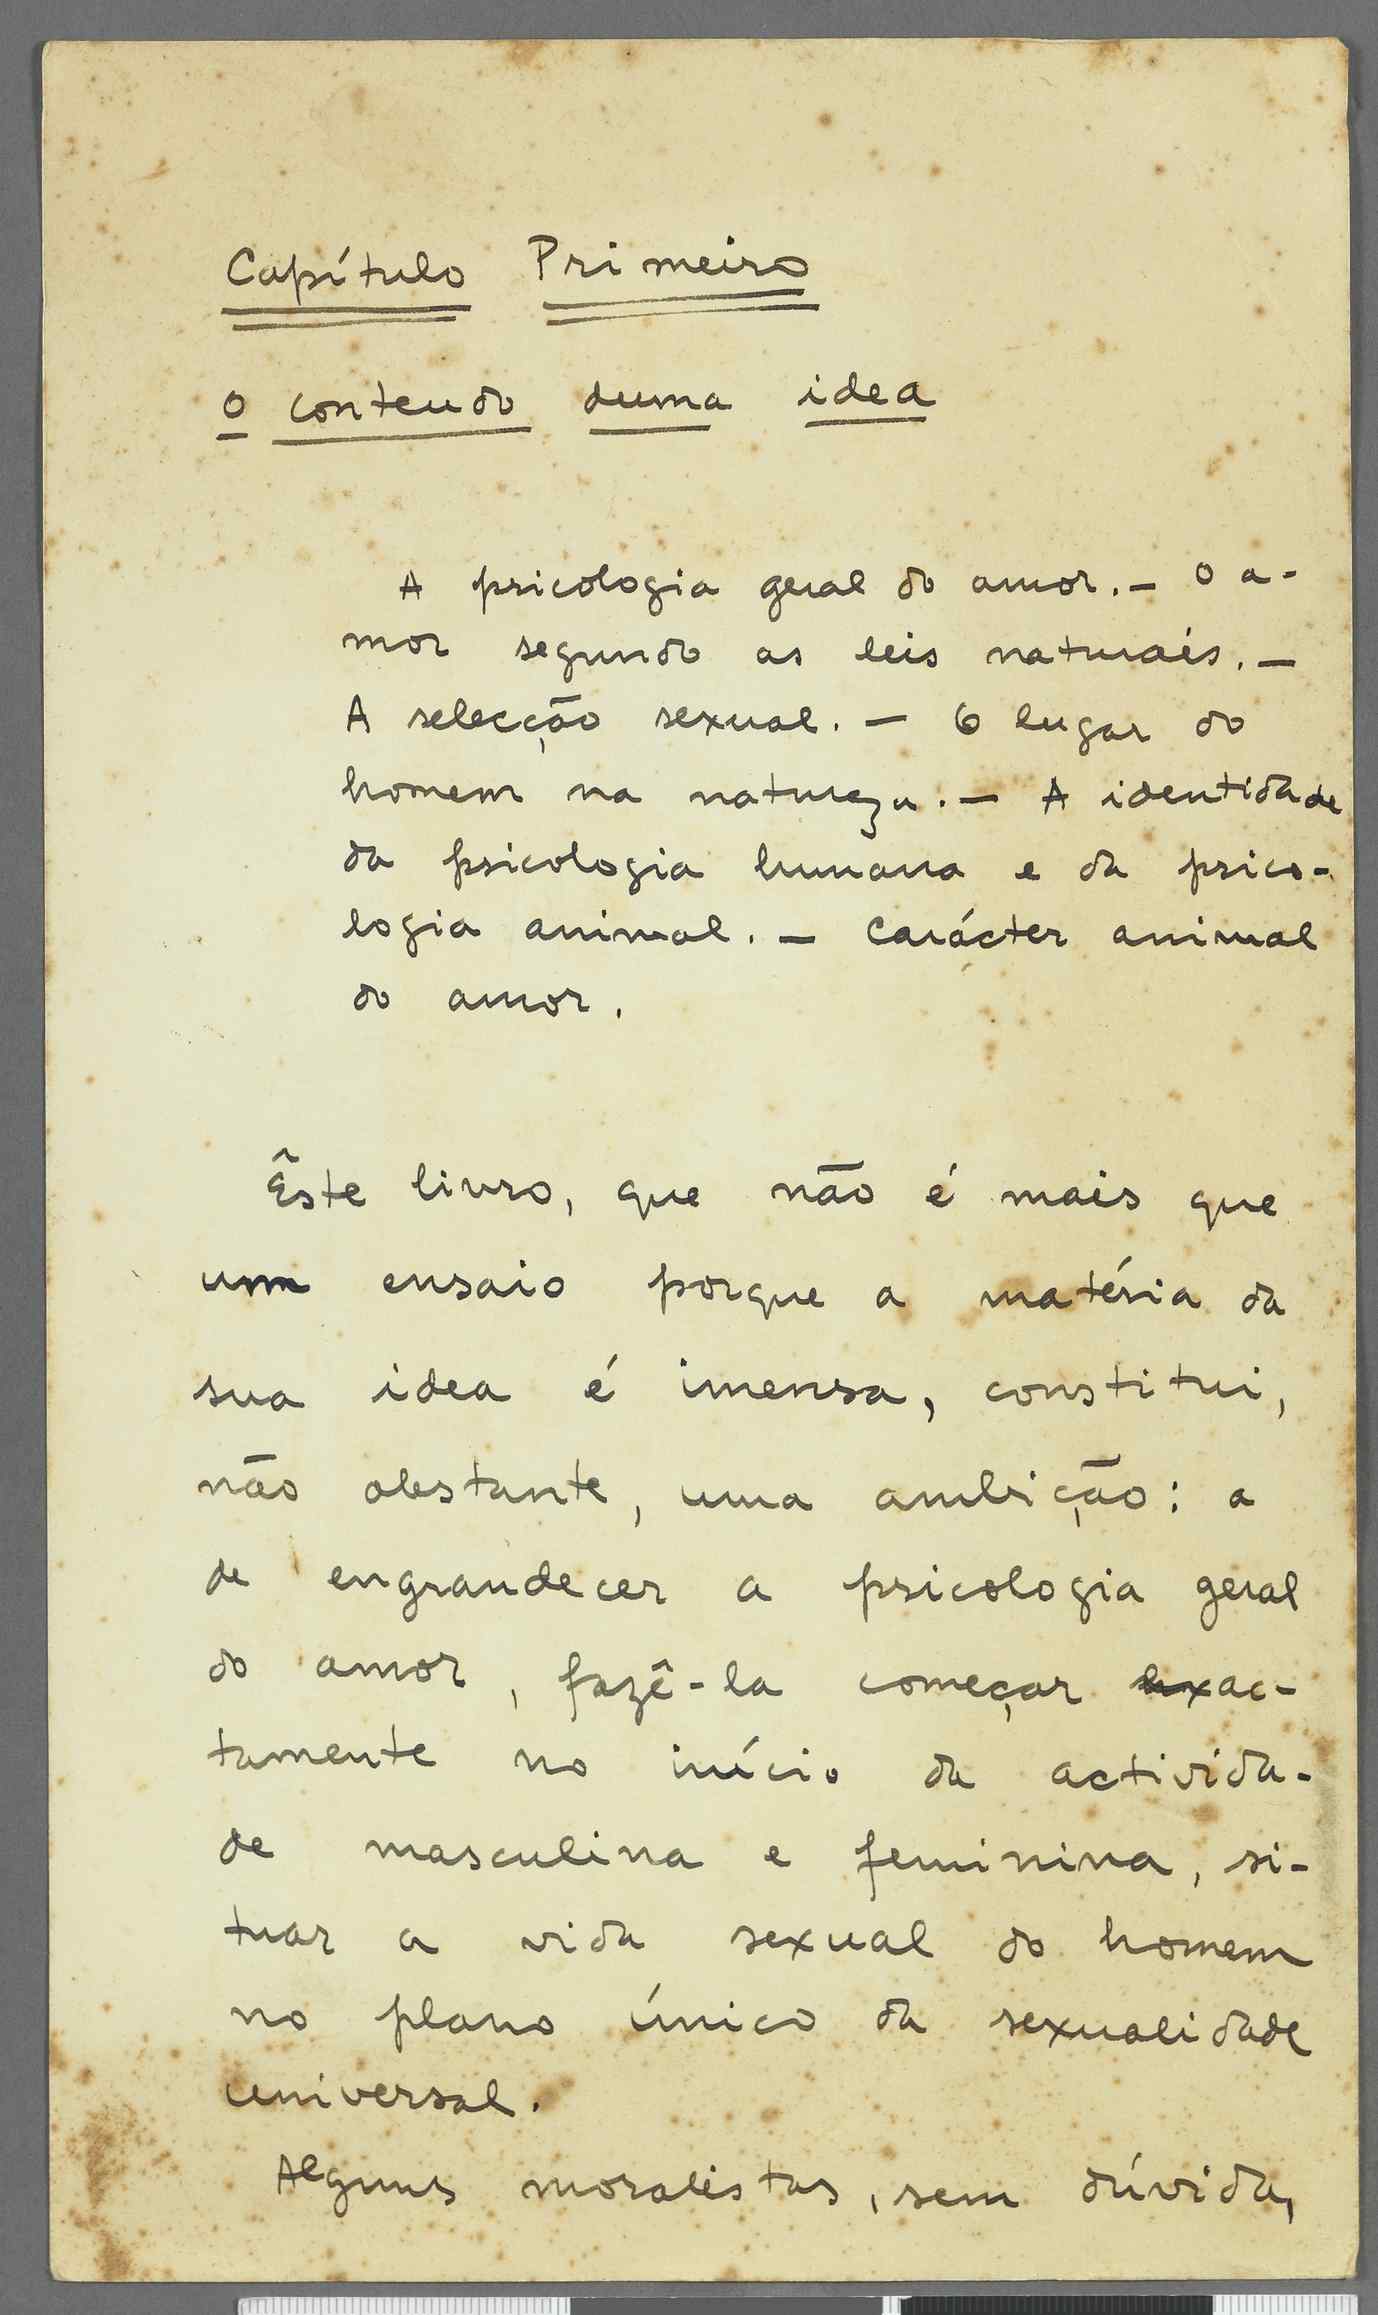 Capítulo Primeiro
O conteudo duma idea
A psicologia geral do amor. — O a-
mor segundo as leis naturais. —
A selecção sexual. — O lugar do
homem na natureza. — A identidade
da psicologia humana e da psico-
logia animal. — Carácter animal
do amor.
Êste livro, que não é mais que
um ensaio porque a matéria da
sua idea é imensa, constitui,
não obstante, uma ambição: a
de engrandecer a psicologia geral
do amor, fazê-la começar exac-
tamente no início da activida-
de masculina e feminina, si-
tuar a vida sexual do homem
no plano único da sexualidade
universal.
Alguns moralistas, sem dúvida,